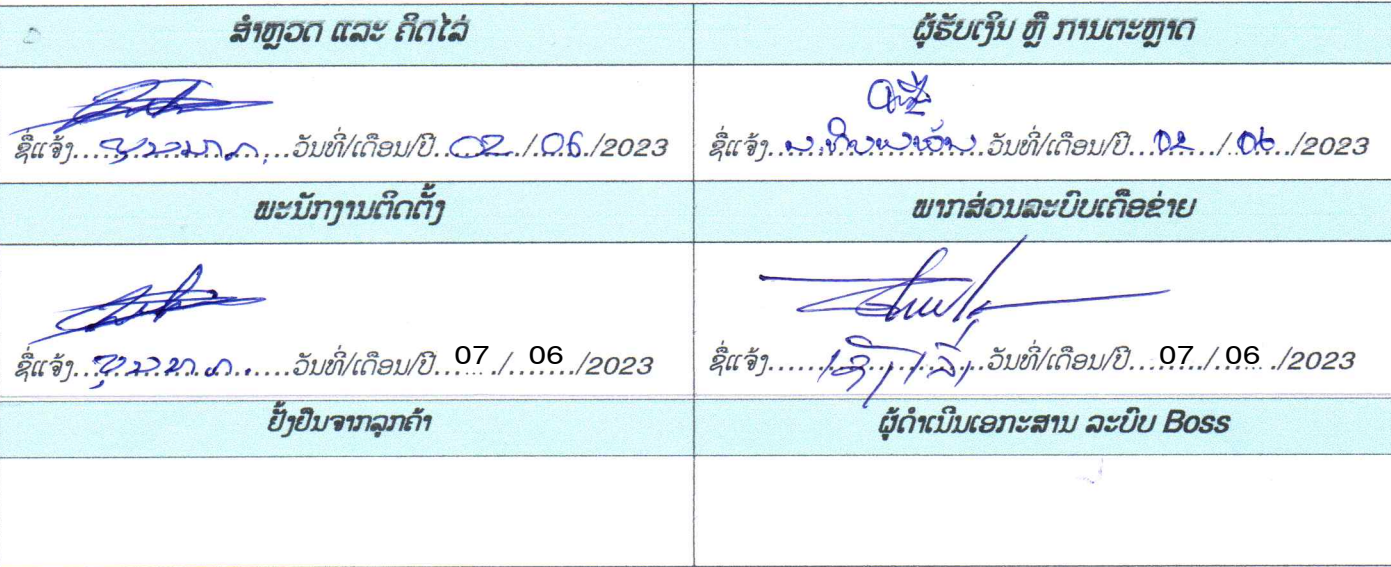 ສຳຫຼວດ ແລະ ຄິດໄລ່
ຜູ້ຮັບເງິນ ຫຼື ການຕະຫຼາດ
ຊື່ແຈ້ງ.... ....ວັນທີ່/ເດືອນ/ປີ..02../.06./2023
ຊື່ແຈ້ງ.... ....ວັນທີ່/ເດືອນ/ປີ...02.../.06.../2023
ພະນັກງານຕິດຕັ້ງ
ພາກສ່ວນລະບົບເຄືອຂ່າຍ
ຊື່ແຈ້ງ.... ....ວັນທີ່/ເດືອນ/ປີ...07../...06.../2023
ຊື່ແຈ້ງ.... ....ວັນທີ່/ເດືອນ/ປີ...07../.06.../2023
ຢັ້ງຢືນຈາກລູກຄ້າ
ຜູ້ດຳເນີນເອກະສານ ລະບົບ Boss